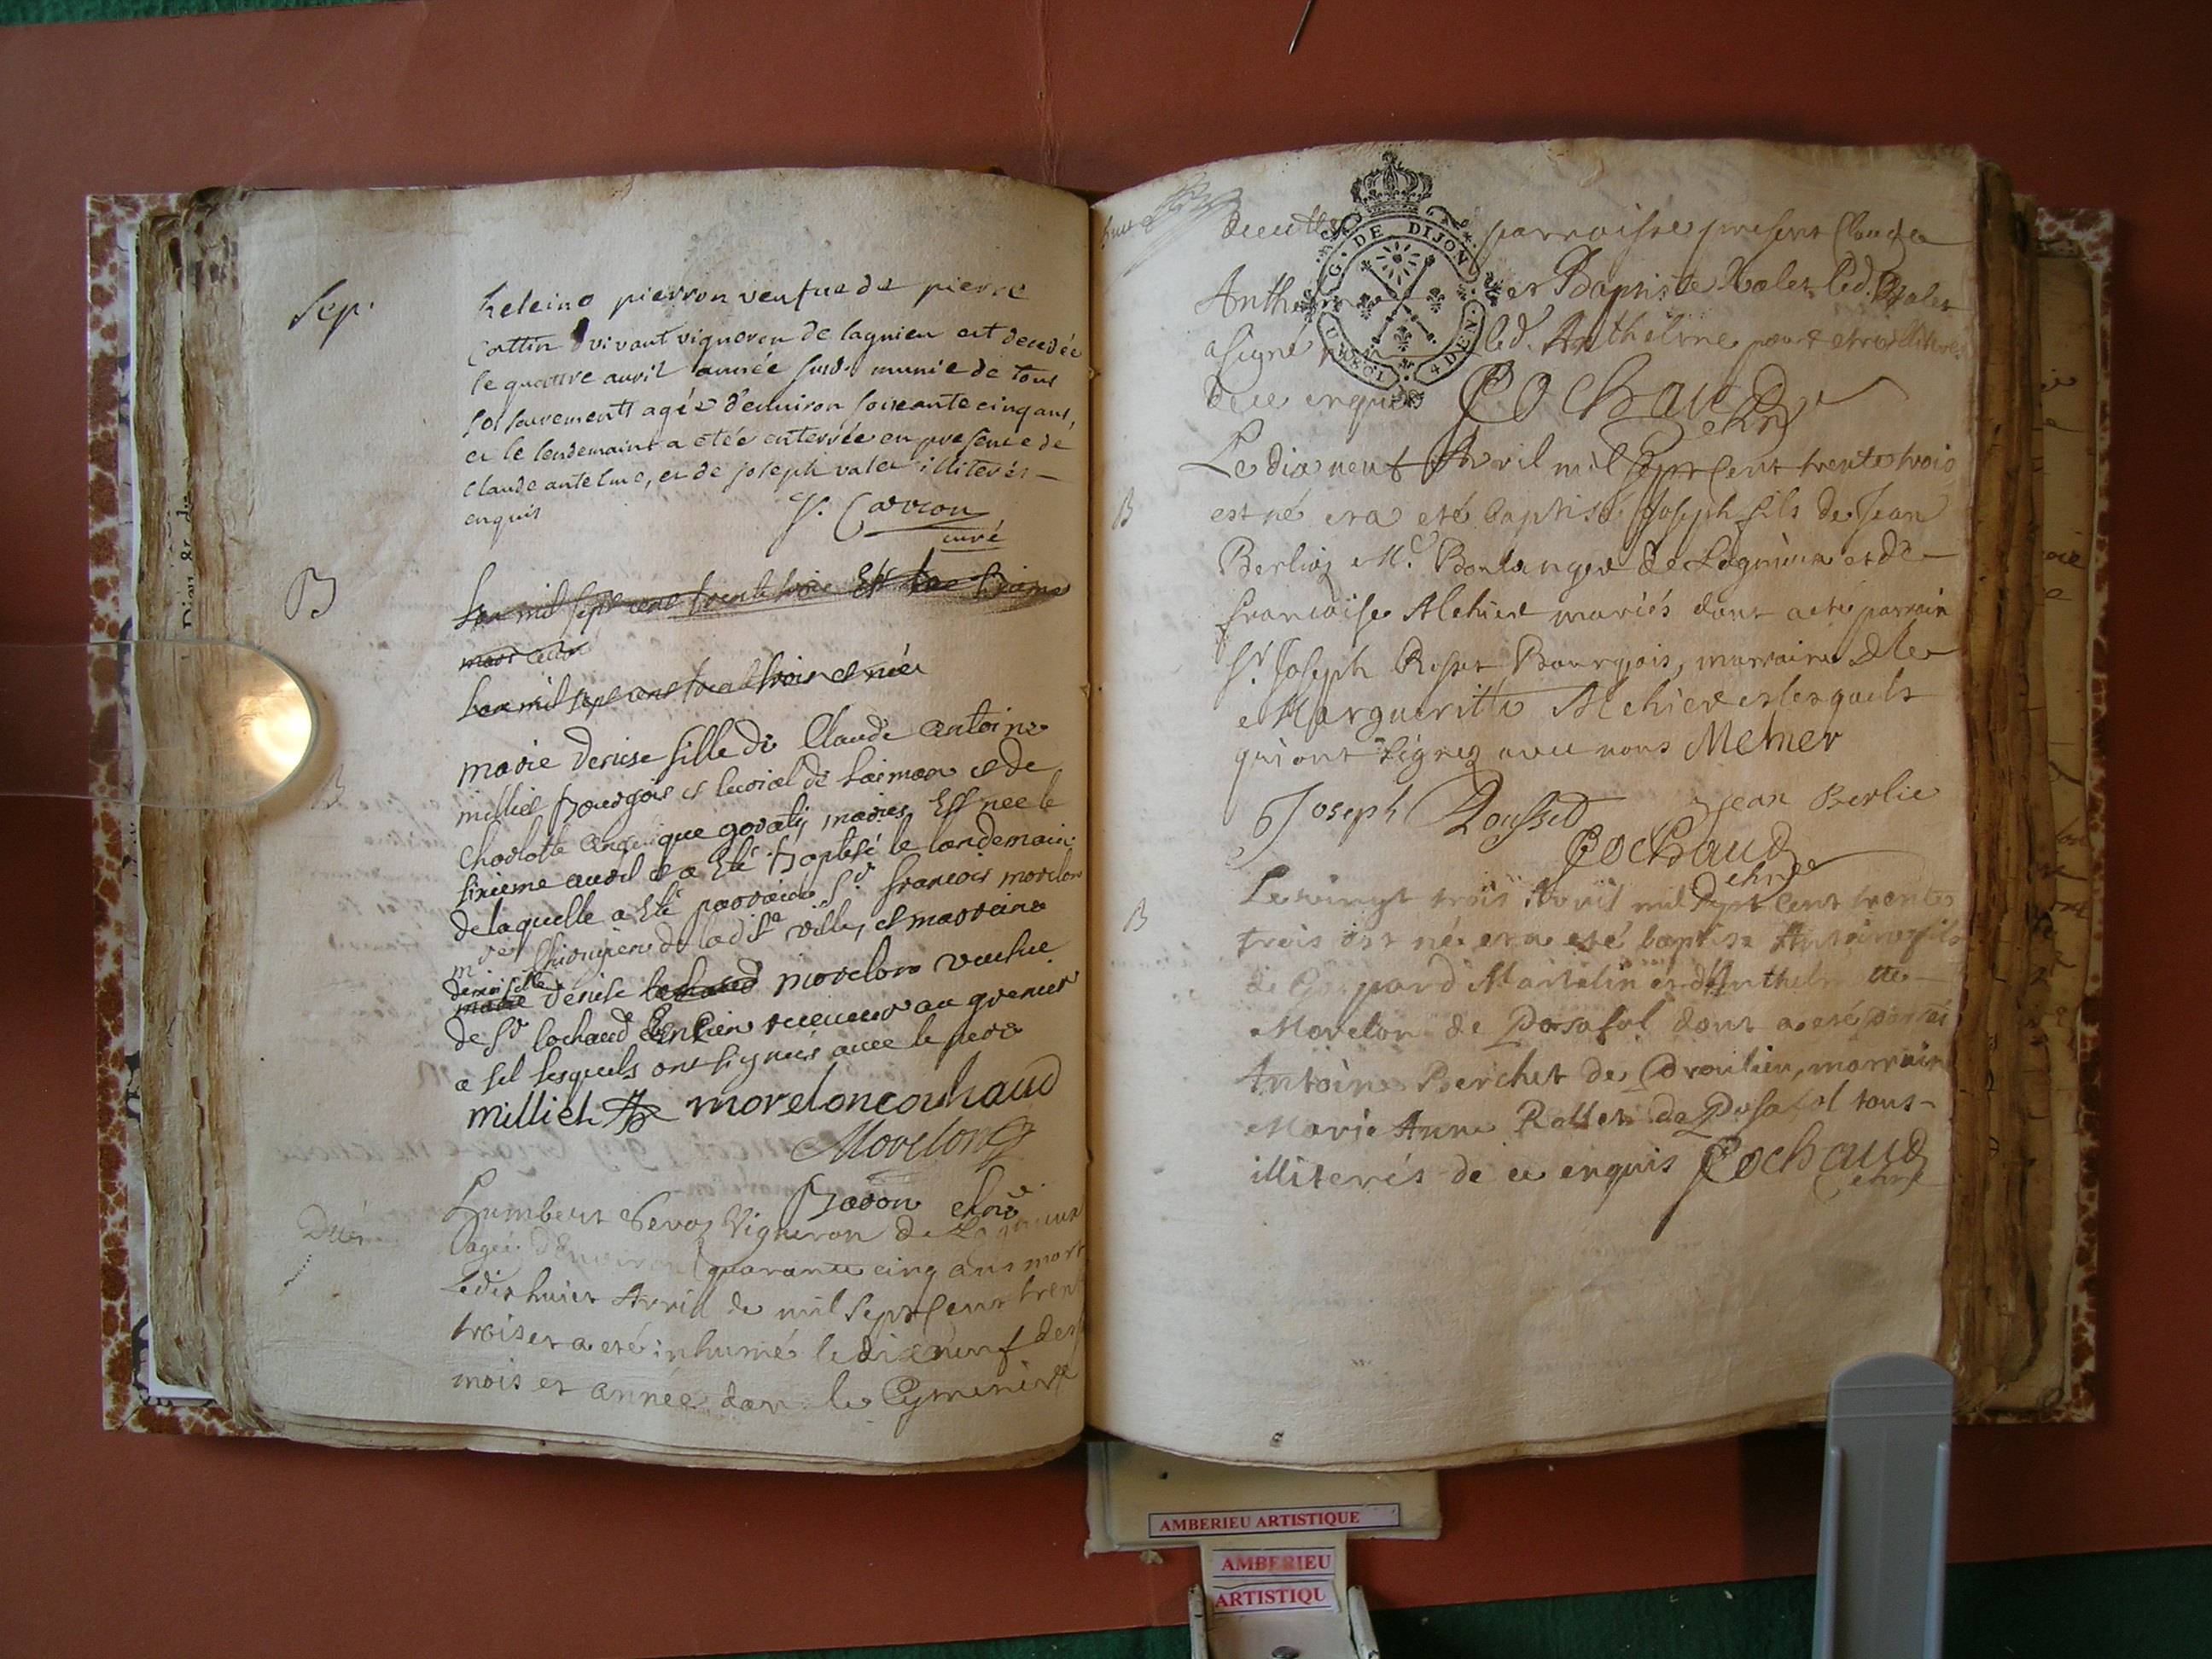 Sep.
heleine pierron veufue de pierre
Cottin vivant vigneron de lagnieu est decedée
le quattre auril année susd. munie de tous
sacrements agée d'enuiron soixante cinq ans,
et le lendemain a etée enterrée en presence de
Claude antelme, et de joseph valet illiterés
enquis
Carron
curé
B
Lan mil sept cent trente trois Est
Lan mil sept cent trente trois et née
marie denise fille de Claude antoine
milliet bourgois et de
Charlotte mariés Est nee le
sixieme auril et a Eté baptisé le landemain
de laquelle a Eté parrain Sr francois morelon
mtre Chirurgien de ladite ville, et marraine
demoiselle
denise morelon veufue
de Sr Cochaud receueur au grenier
a sel lesquels ont signés auec le pere
milliet moreloncochaud
Morelon
Baron
Humbert Vigneron de Lagnieux
agée d'Environ quarante cinq ans mort
Le dix huict Avril de mil sept Cent trent
trois et a eté inhumé le dix neuf des
mois et année dans le Cymetiere
parroisse present Claude
Anthe et Baptiste Valet led. Valet
a signé non led. Anthelme pour etre
de ce enquis Cochaud
G. DE DIJON
4 DEN
Le dix neuf Avril mil sept Cent trente trois
B
est né et a eté baptisé Joseph fils de Jean
Berlioz Md. Boulanger de Lagnieux et de
francoise Mehier mariés dont a eté parrain
Sr. Joseph Rosset Bourgeois, marraine Dlle
Margueritte Mehier et lesquels
qui ont signez avec nous Mehier
Joseph Rousset
Jean Berlie
Cochaud
B
Le vingt trois Avril mil sept Cent trente
trois est né et a eté baptisé Antoine fils
de Gaspard Martelin et d'Anthelmette
Morelon de Posafol dont a eté parrai
Antoine Berchet de Proulieu, marrain
Marie Anne Rollet de Posafol tous
illiterés de ce enquis Cochaud
AMBERIEU ARTISTIQUE
AMBERIEU
ARTISTIQU